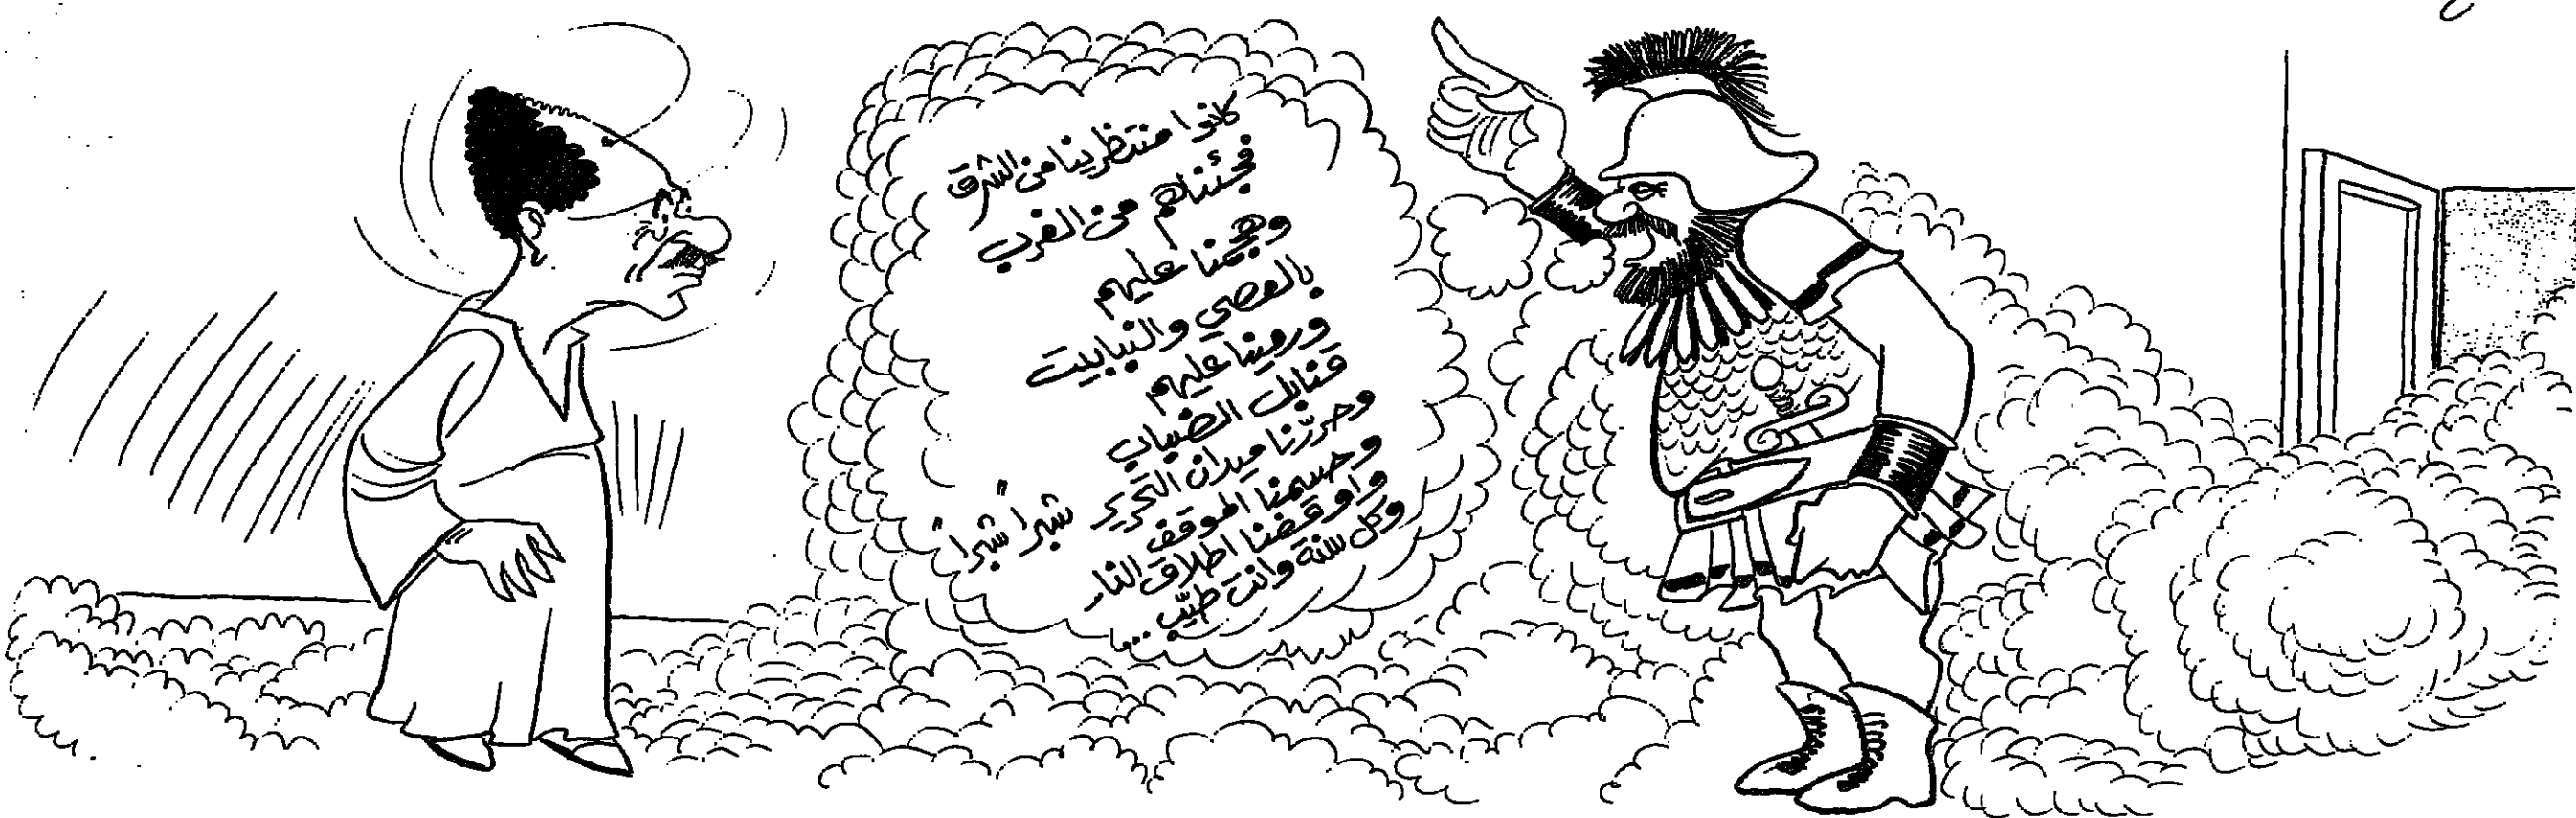 كانوا منتظرينا من الشرق
فجئناهم من الغرب
وهجمنا عليهم
بالعصي والنبابيت
ورمينا عليهم
قنابل الضباب
وحررّنا ميدان التحرير شبراً شبراً
وحسمنا الموقف
واوقفنا اطلاق النار
وكل سنة وانت طيّب ...